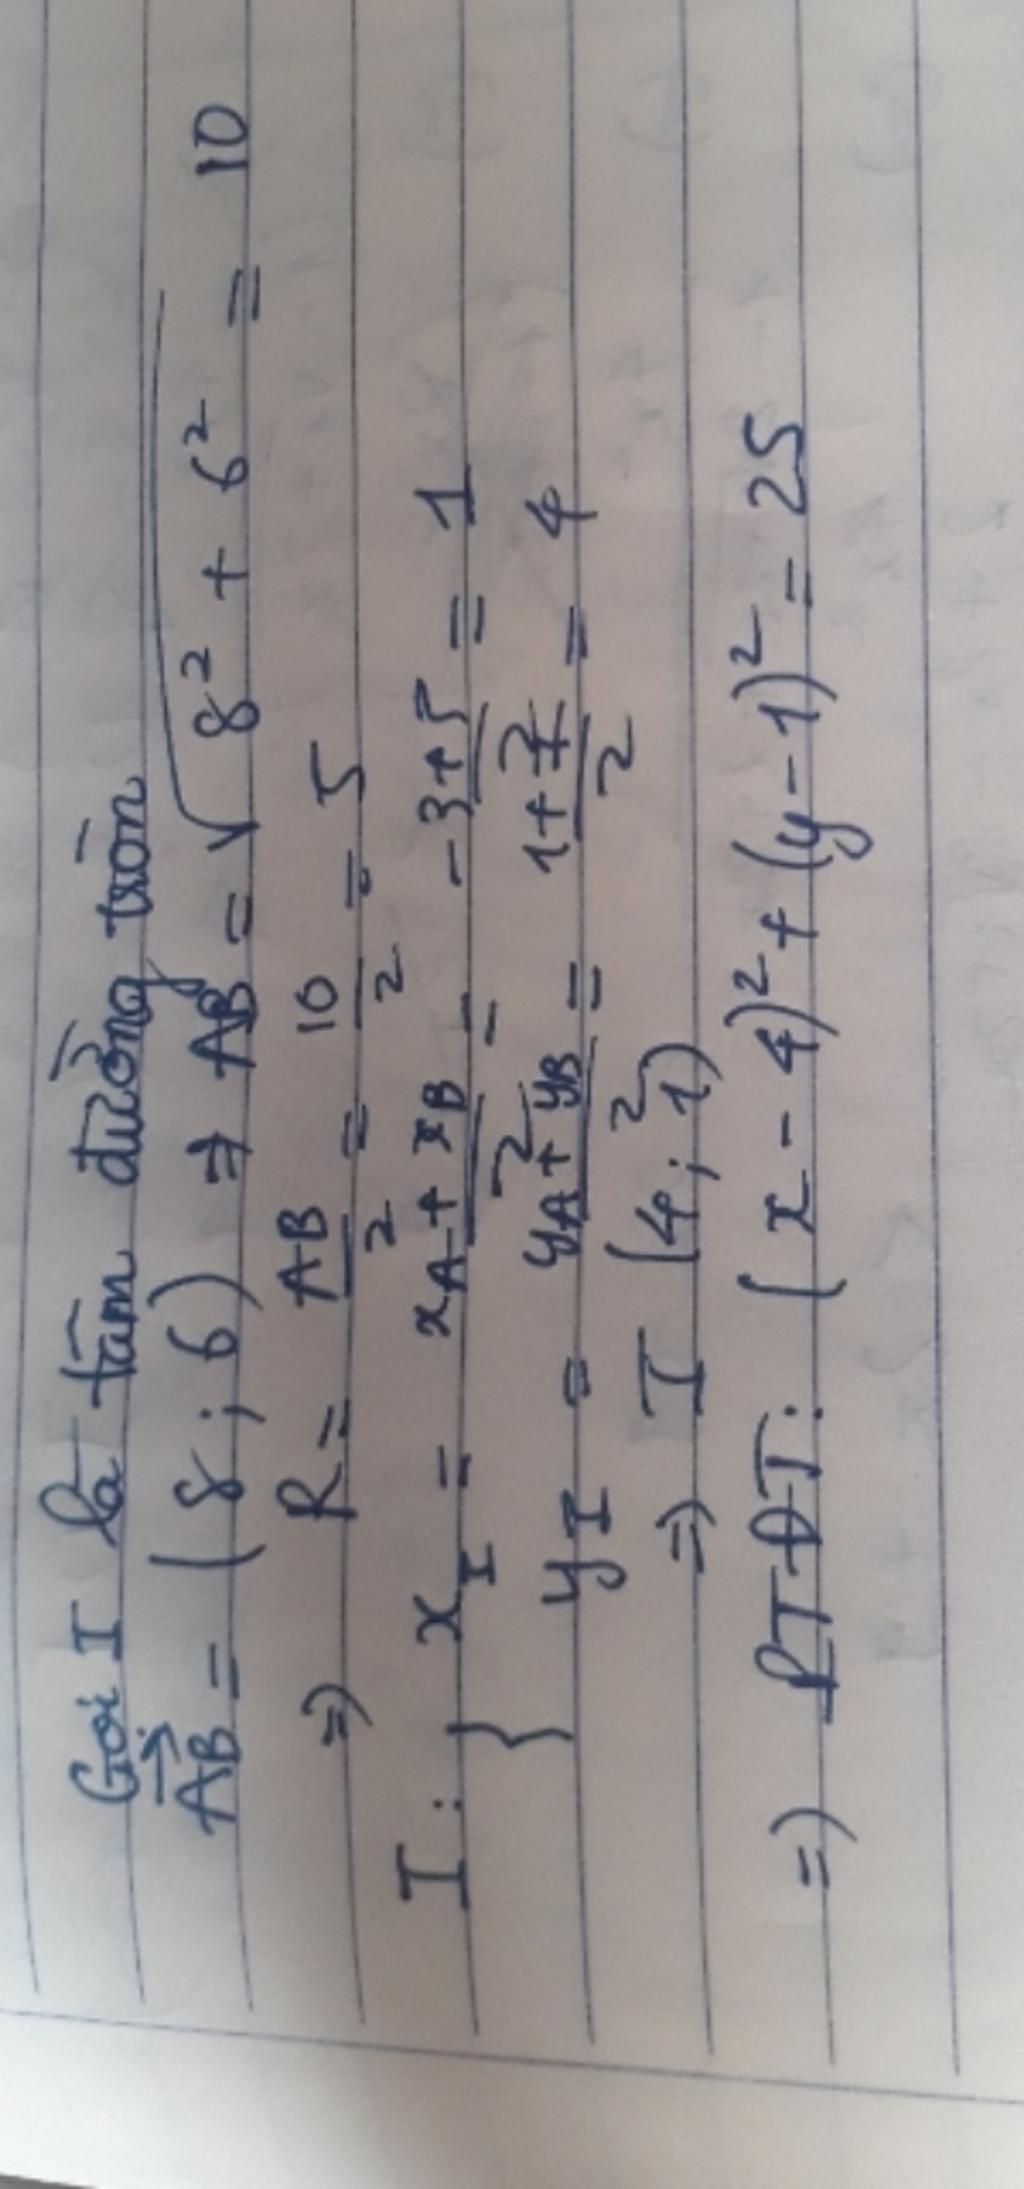 Gọi I là tâm đường tròn
AB = (8 ; 6) ⇒ AB = √8² + 6² = 10
⇒ R = AB/2 = 10/2 = 5
I : { x_I = x_A + x_B / 2 = -3+5 / 2 = 1
y_I = y_A + y_B / 2 = 1+7 / 2 = 4
⇒ I (4 ; 1)
⇒ PTĐT: (x - 4)² + (y - 1)² = 25